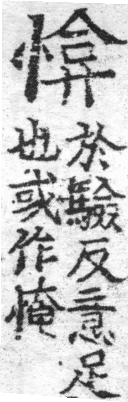 於驗反意足
也或作㤿